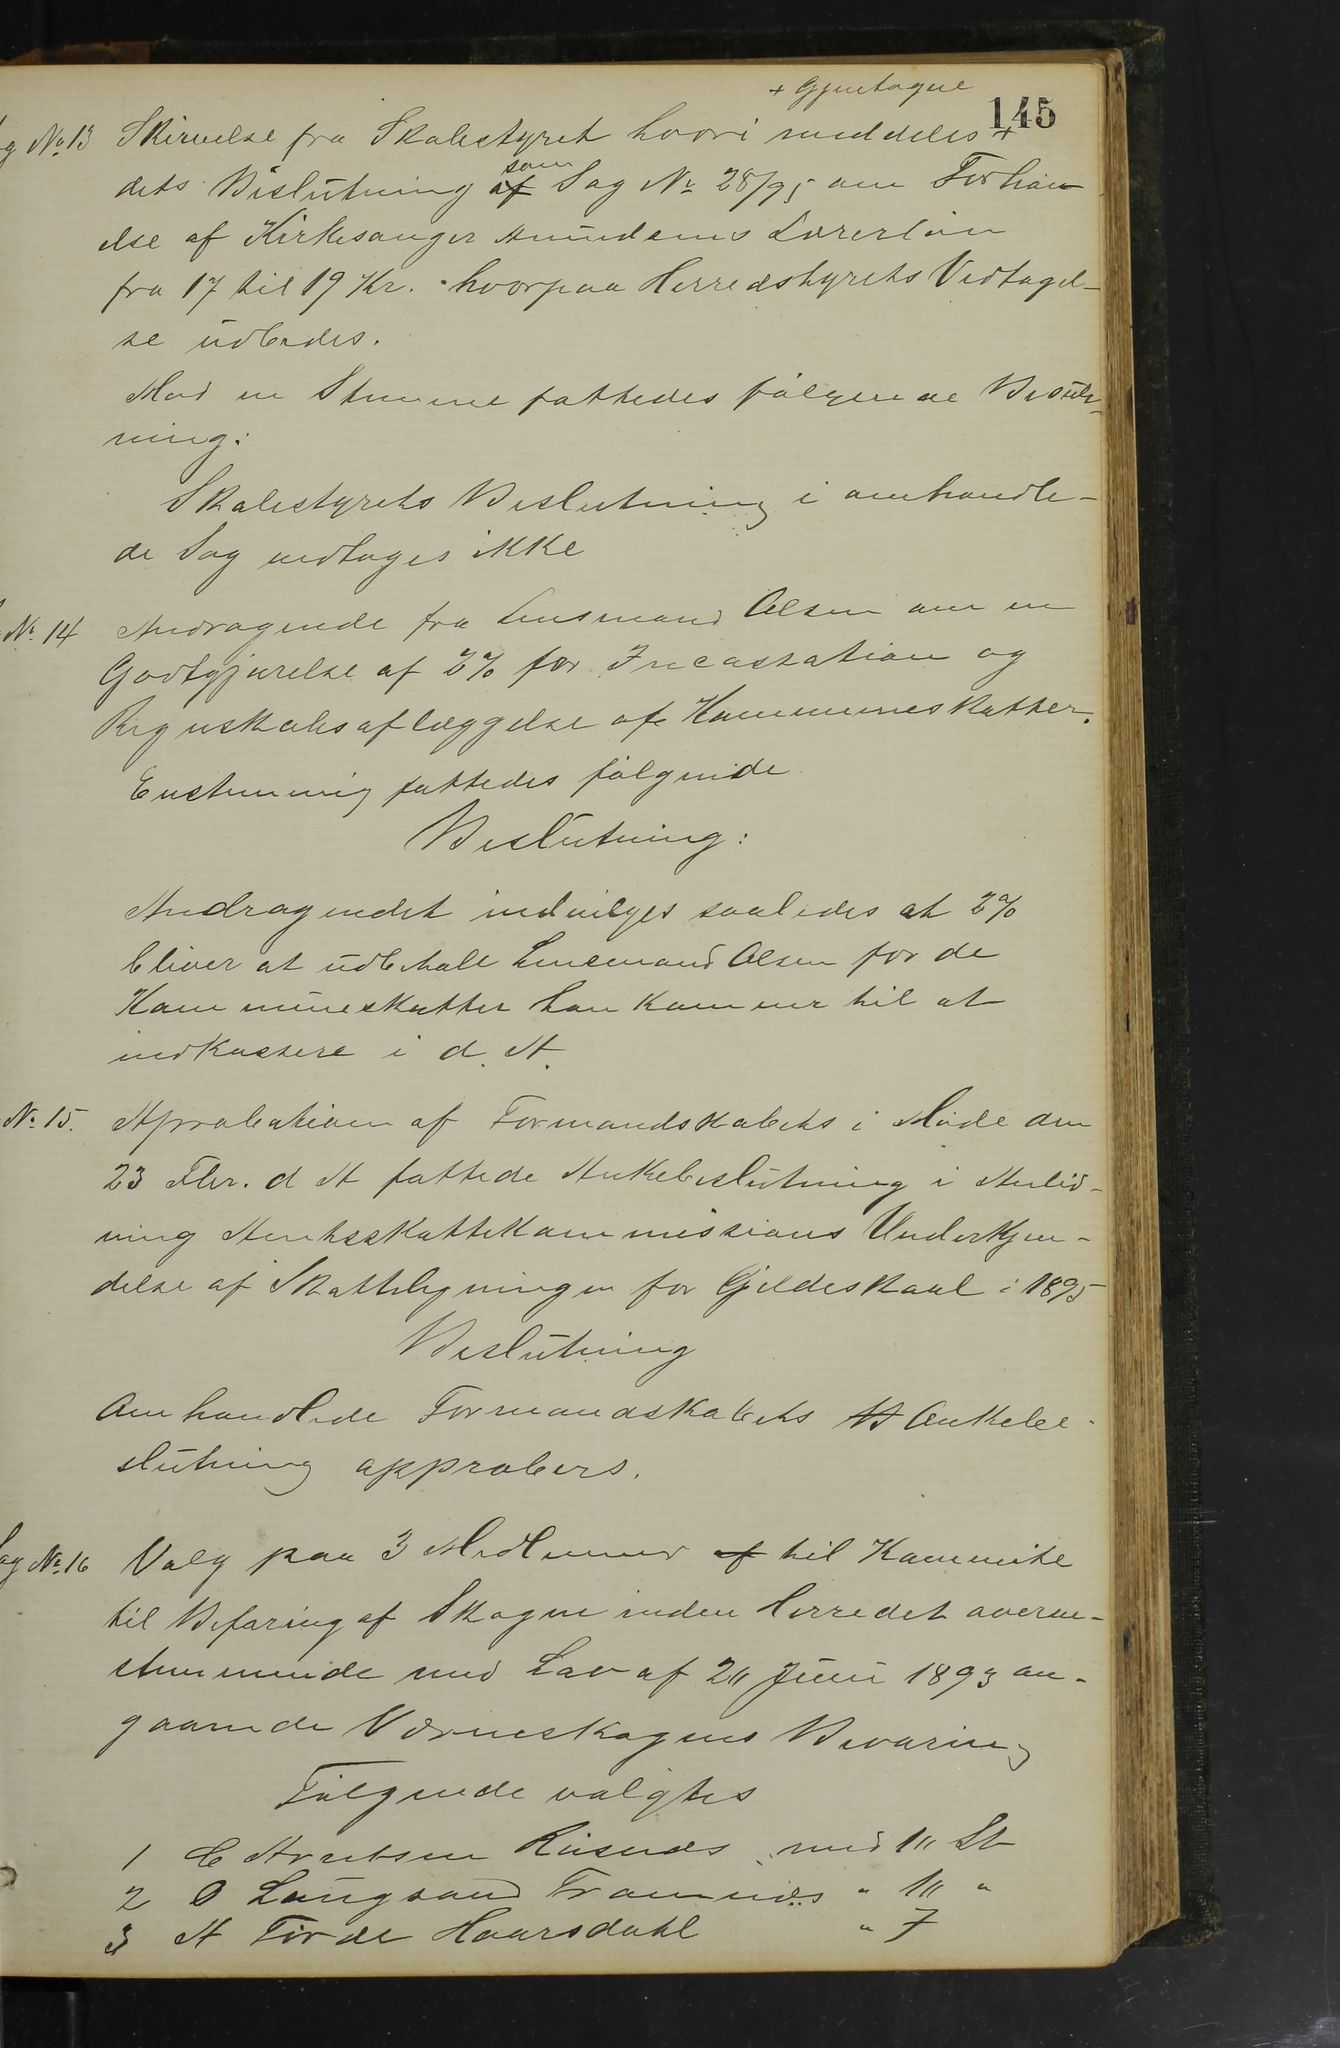 + Gjentagne
145
g No 13 Skrivelse fra Skolestyret hvori meddeles +
dets Beslutning af som Sag No 28/95 om Forhøi-
else af Kirkesanger Amundsens Lærerløn
fra 17 til 19 Kr. hvorpaa Herredstyrets Vedtagel-
se udbedes.
Mod en Stemme fattedes følgende Beslut-
ning:
Skolestyrets Beslutning i omhandle-
de Sag vedtages ikke
No 14 Andragende fra Lensmand Olsen om en
Godtgjørelse af 2% for Incassation og
Regnskabsaflæggelse af Kommuneskatter.
Enstemmig fattedes følgende
Beslutning:
Andragendet indvilges saaledes at 2%
bliver at udbetale Lensmand Olsen for de
Kommuneskatter han kommer til at
indkassere i d. A.
No 15. Aprobation af Formandskabets i Møde den
23 Fbr. d A fattede Ankebeslutning i Anled-
ning Amtsskattekommissions Underkjen-
delse af Skatteligningen for Gildeskaal i 1895
Beslutning
Omhandlede Formandskabets Ankebe-
slutning approberes.
Sag No 16 Valg paa 3 Medlemmer af til Kommite
til Befaring af Skogene inden Herredet overen-
stemmende med Lov af 20 Juni 1893 an-
gaaende Værneskogens Bevaring
Følgende valgtes
1 C Arntsen Riisnæs med 10 St
2 O Langsand Framnæs " 10 "
3 A Førde Haarsdahl " 7